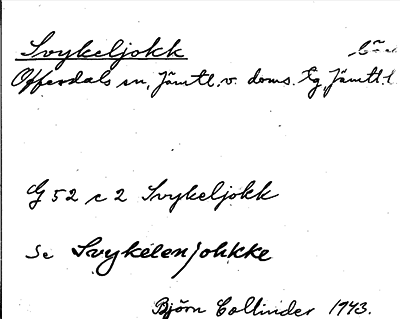 Svykeljokk
Offerdals sn, Jämtl. v. doms. Tg, Jämtl. l.
G 52 c 2 Svykeljokk
Se Svykelenjohkke
Björn Collinder 1943.